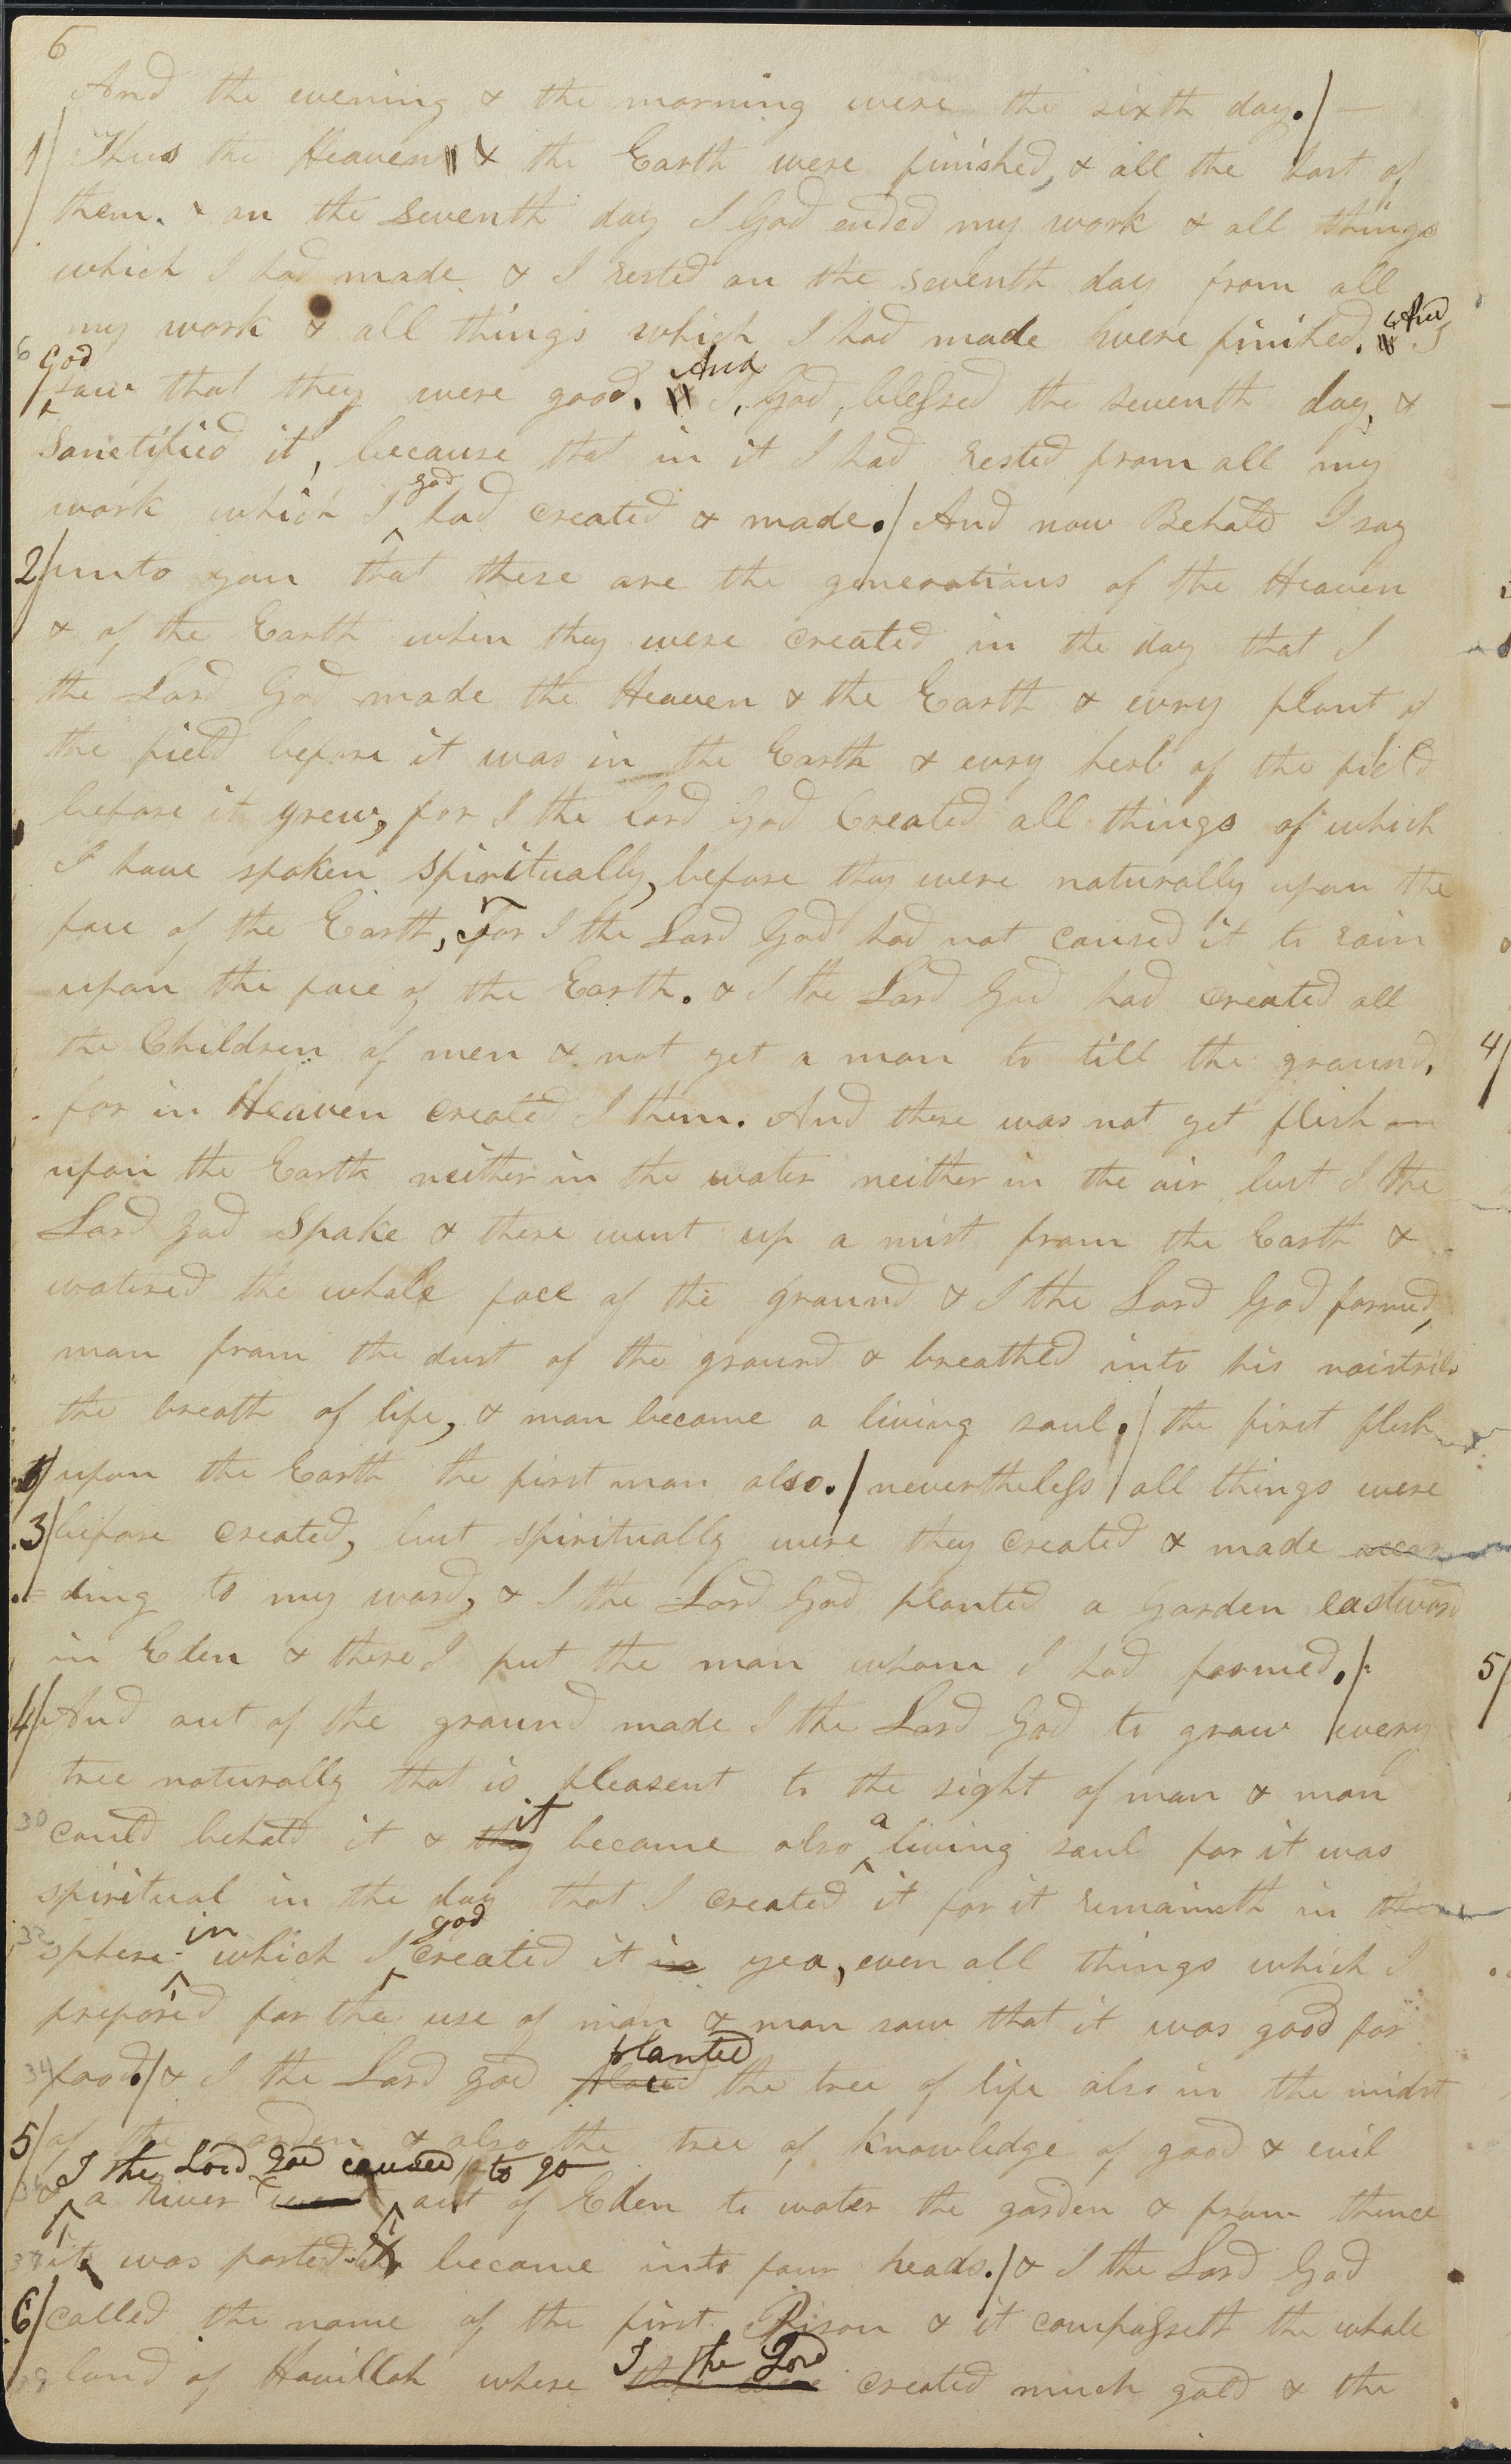 6
And the evening & the morning were the sixth day./ —
1/ Thus the Heaven & the Earth were finished, & all the host of
them. & on the seventh day I God ended my work & all things
which I had made & I rested on the seventh day from all
my work & all things which I had made were finished. And I
6 God
saw that they were good. And I, God, blessed the seventh day, &
Sanctified it, because that in it I had rested from all my
god
work which I had created & made./ And now Behold I say
2/ unto you that these are the generations of the Heaven
& of the Earth when they were created in the day that I
the Lord God made the Heaven & the Earth & evry plant of
the field before it was in the Earth & evry herb of the field
before it grew, for I the Lord God Created all things of which
I have spoken spiritually, before they were naturally upon the
face of the Earth, For I the Lord God had not caused it to rain
upon the face of the Earth. & I the Lord God had created all
the Children of men & not yet a man to till the ground,
for in Heaven created I them. And there was not yet flesh on
upon the Earth neither in the water neither in the air but I the
Lord God Spake & there went up a mist from the Earth &
watered the whole face of the ground & I the Lord God formed,
man from the dust of the ground & breathed into his noistrils
the breath of life, & man became a living soul./ the first flesh
upon the Earth the first man also./ nevertheless / all things were
3/ before created, but spiritually were they created & made accor
ding to my word, & I the Lord God planted a Garden eastward
in Eden & there I put the man whom I had formed./
4/ And out of the ground made I the Lord God to grow / every
tree naturally that is pleasent to the sight of man & man
it a
30 could behold it & they became also living soul for it was
spiritual in the day that I created it for it remaineth in the
in god
32 sphere which I created it in yea, even all things which I
prepared for the use of man & man saw that it was good for
planted
34 food./ & I the Lord God placed the tree of life also in the midst
5/ of the garden & also the tree of knowledge of good & evil
I the Lord God caused to go
36 & a river went out of Eden to water the garden & from thence
it was parted & became into four heads./ & I the Lord God
6/ called the name of the first Pison & it compasseth the whole
I the Lord
39 land of Havillah where there were created much gold & the
4/
5/